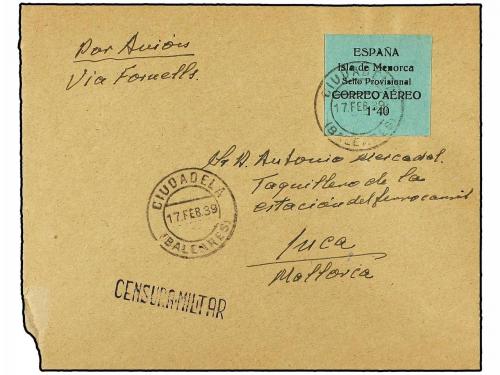 Por Avión
Via Fornells.
ESPAÑA
Isla de Menorca
Sello Provisional
CORREO AÉREO
1'40
CIUDADELA
17.FEB.39
(BALEARES)
Sr. D. Antonio Mercadal.
Taquillero de la
estación del ferrocarril
Inca
Mallorca
CIUDADELA
17.FEB.39
(BALEARES)
CENSURA MILITAR